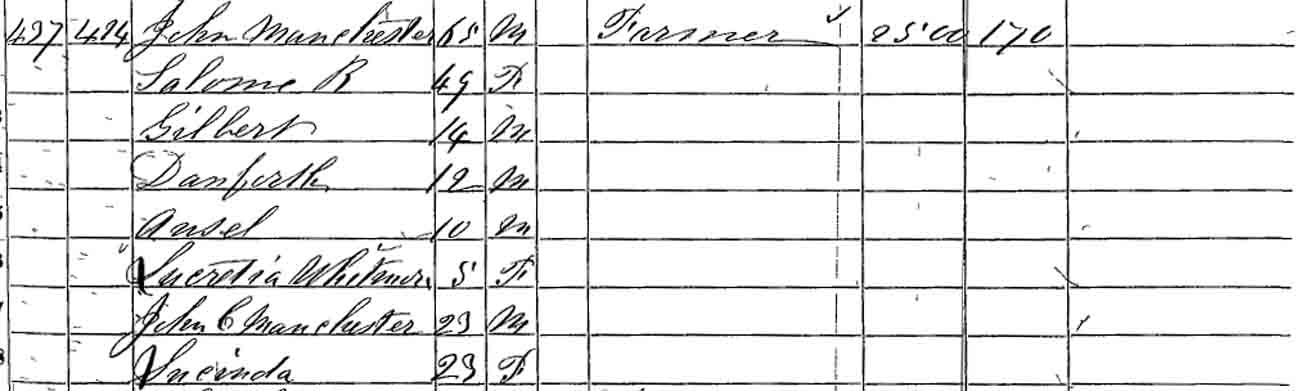 427 424 John Manchester 65 M Farmer 2500 170
Salome R 49 F
Gilbert 14 M
Danforth 12 M
Ansel 10 M
Lucretia Whitmore 5 F
John C Manchester 23 M
Lucinda 23 F